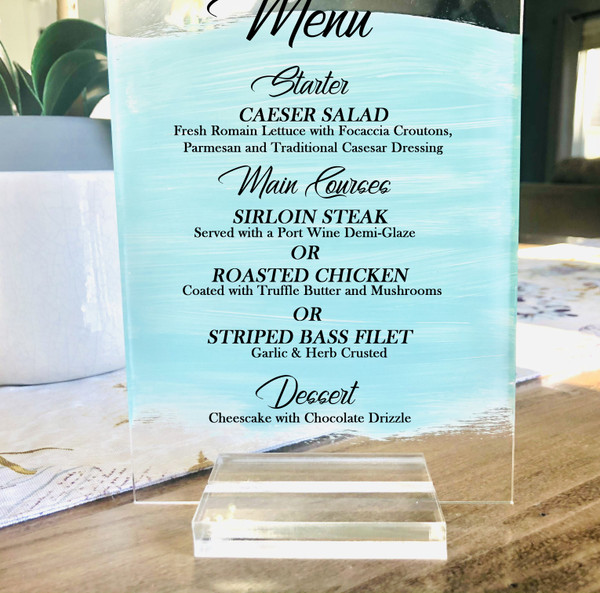 Menu
Starter
CAESER SALAD
Fresh Romain Lettuce with Focaccia Croutons,
Parmesan and Traditional Casesar Dressing
Main Courses
SIRLOIN STEAK
Served with a Port Wine Demi-Glaze
OR
ROASTED CHICKEN
Coated with Truffle Butter and Mushrooms
OR
STRIPED BASS FILET
Garlic & Herb Crusted
Dessert
Cheescake with Chocolate Drizzle